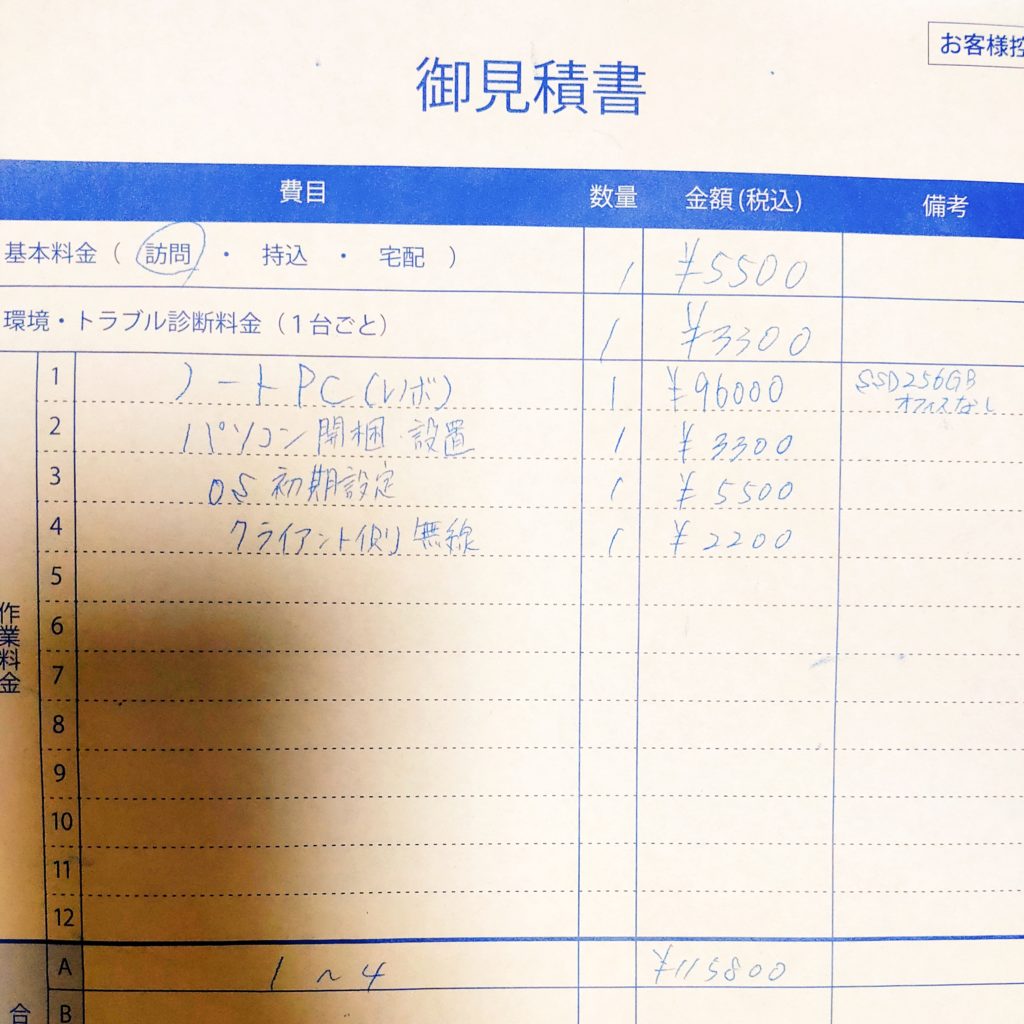 お客様控
御見積書
費目 数量 金額(税込) 備考
基本料金 ( 訪問 ・ 持込 ・ 宅配 ) 1 ¥5500
環境・トラブル診断料金 (1台ごと) 1 ¥3300
作業料金
1 ノートPC(レノボ) 1 ¥96000 SSD256GB
オフィスなし
2 パソコン開梱・設置 1 ¥3300
3 OS初期設定 1 ¥5500
4 クライアント側無線 1 ¥2200
5
6
7
8
9
10
11
12
合
A 1~4 ¥115800
B